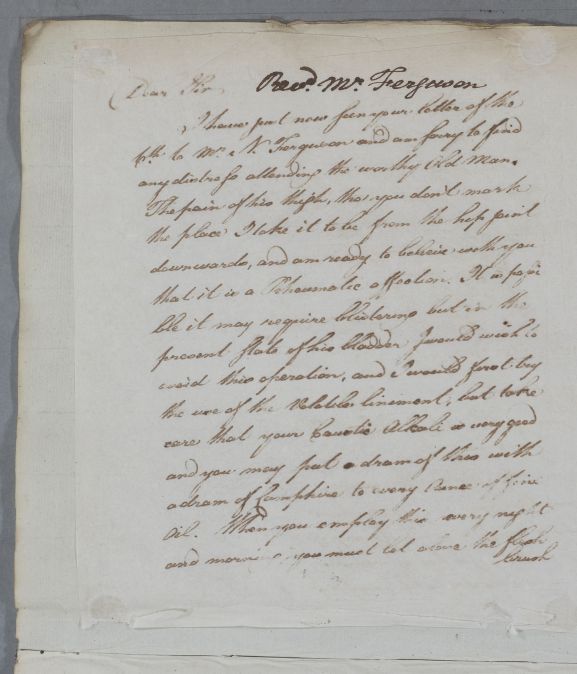 Revd. Mr. Ferguson
Dear Sir,
I have just now seen your letter of the
6th. to Mr. N. Ferguson and am sorry to find
any distress attending the worthy Old Man.
The pain of his thigh, tho you don't mark
the place I take it to be from the hip joint
downwards, and am ready to believe with you
that it is a Rheumatic affection. It is possi
ble it may require blistering but in the
present State of his bladder I would wish to
avoid this operation, and I would first try
the use of the Volatile liniment, but take
care that your Caustic Alkali is very good
and you may put a dram of this with
a dram of Camphire to every Ounce of fine
Oil. When you employ this every night
and morning you must let alone the flesh
brush